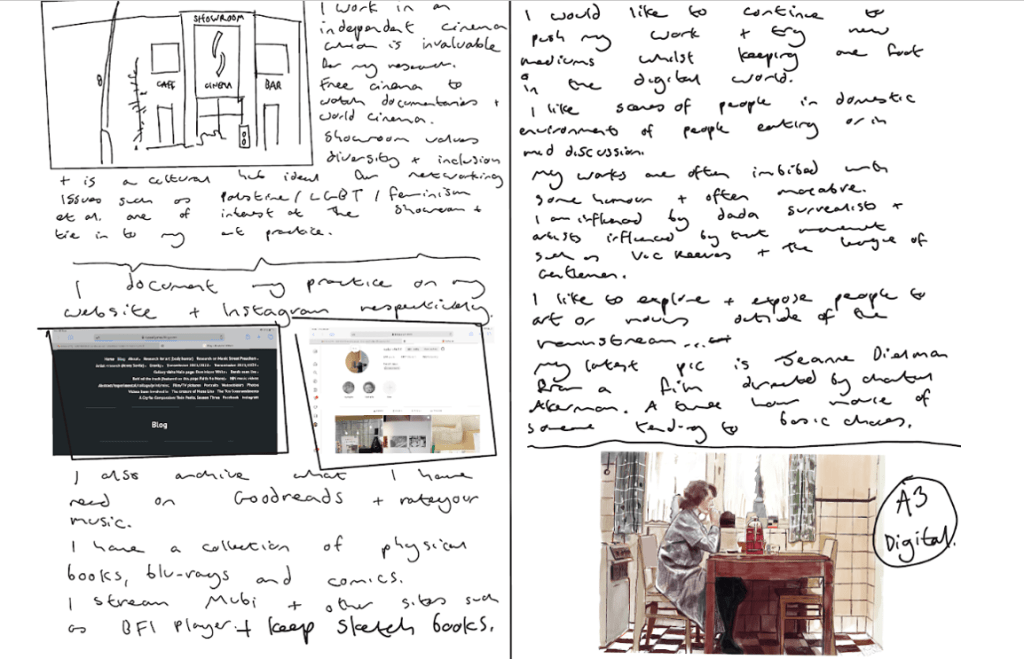 SHOWROOM
CINEMA
CAFE
BAR
I work in an
independent cinema
which is invaluable
for my research.
Free cinema to
watch documentaries +
world cinema.
Showroom values
diversity + inclusion
+ is a cultural hub ideal for networking
Issues such as Palestine / LGBT / feminism
et al. are of interest at the Showroom +
tie in to my art practice.
I document my practice on my
website + Instagram respectively.
Blog
I also archive what I have
read on Goodreads + rateyour
music.
I have a collection of physical
books, blu-rays and comics.
I stream Mubi + other sites such
as BFI Player + keep sketch books.
I would like to continue to
push my work + try new
mediums whilst keeping one foot
in the digital world.
I like scenes of people in domestic
environments of people eating or in
mid discussion.
My works are often imbibed with
some humour + often macabre.
I am influenced by dada surrealists +
artists influenced by that movement
such as Vic Reeves + The league of
Gentlemen.
I like to explore + expose people to
art or movies outside of the
mainstream...
My latest pic is Jeanne Dielman
from a film directed by chantal
Akerman. A three hour movie of
someone tending to basic chores.
A3
Digital.